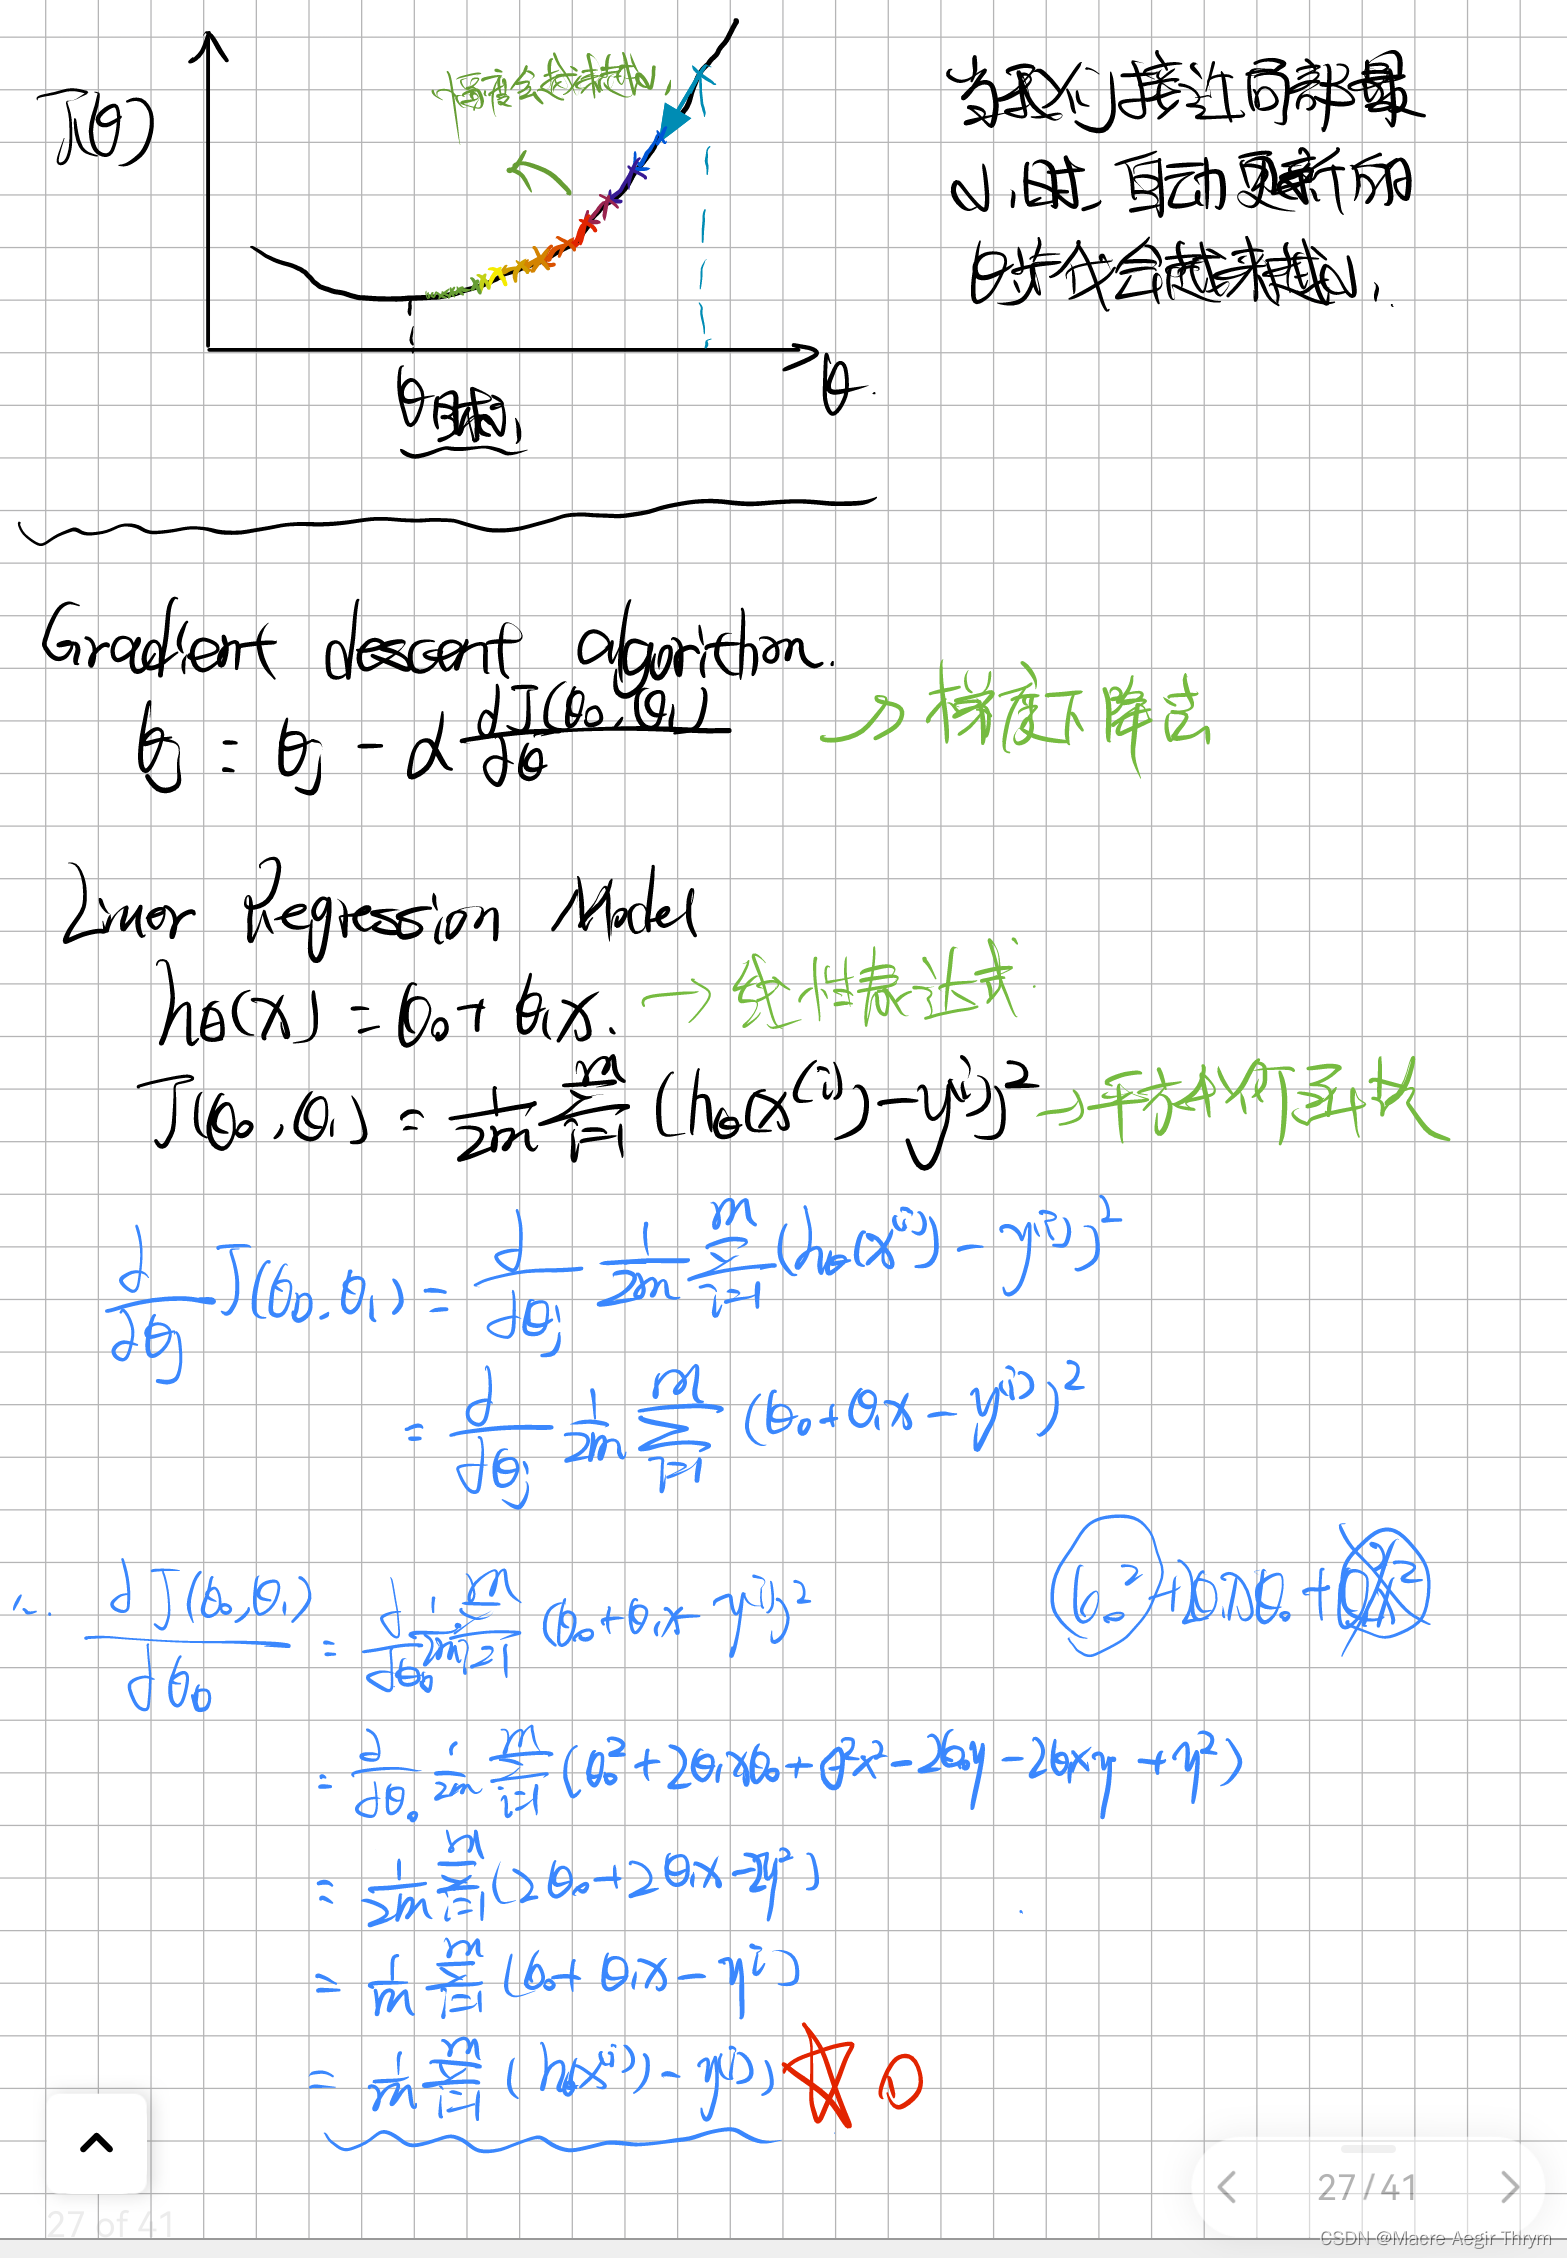 J(θ)
幅度会越来越小
θ
θ目标
当我们接近局部最
小时,自动更新的
θ步伐会越来越小.
Gradient descent algorithm.
θj := θj - α dJ(θ₀,θ₁)/dθ → 梯度下降法
Linear Regression Model
hθ(x) = θ₀ + θ₁x. → 线性表达式
J(θ₀,θ₁) = 1/2m Σ_{i=1}^{m} (hθ(x^(i)) - y^(i))² → 平方代价函数
d/dθj J(θ₀,θ₁) = d/dθj 1/2m Σ_{i=1}^{m} (hθ(x^(i)) - y^(i))²
= d/dθj 1/2m Σ_{i=1}^{m} (θ₀ + θ₁x - y^(i))²
∴ dJ(θ₀,θ₁)/dθ₀ = d/dθ₀ 1/2m Σ_{i=1}^{m} (θ₀ + θ₁x - y^(i))²
θ₀² + 2θ₁xθ₀ +
= d/dθ₀ 1/2m Σ_{i=1}^{m} (θ₀² + 2θ₁xθ₀ + θ²x² - 2θ₀y - 2θ₁xy + y²)
= 1/2m Σ_{i=1}^{m} (2θ₀ + 2θ₁x - 2y²)
= 1/m Σ_{i=1}^{m} (θ₀ + θ₁x - y^i)
= 1/m Σ_{i=1}^{m} (hθ(x^(i)) - y^(i)) ☆ ①
27 of 41
27/41
CSDN @Maere Aegir Thrym